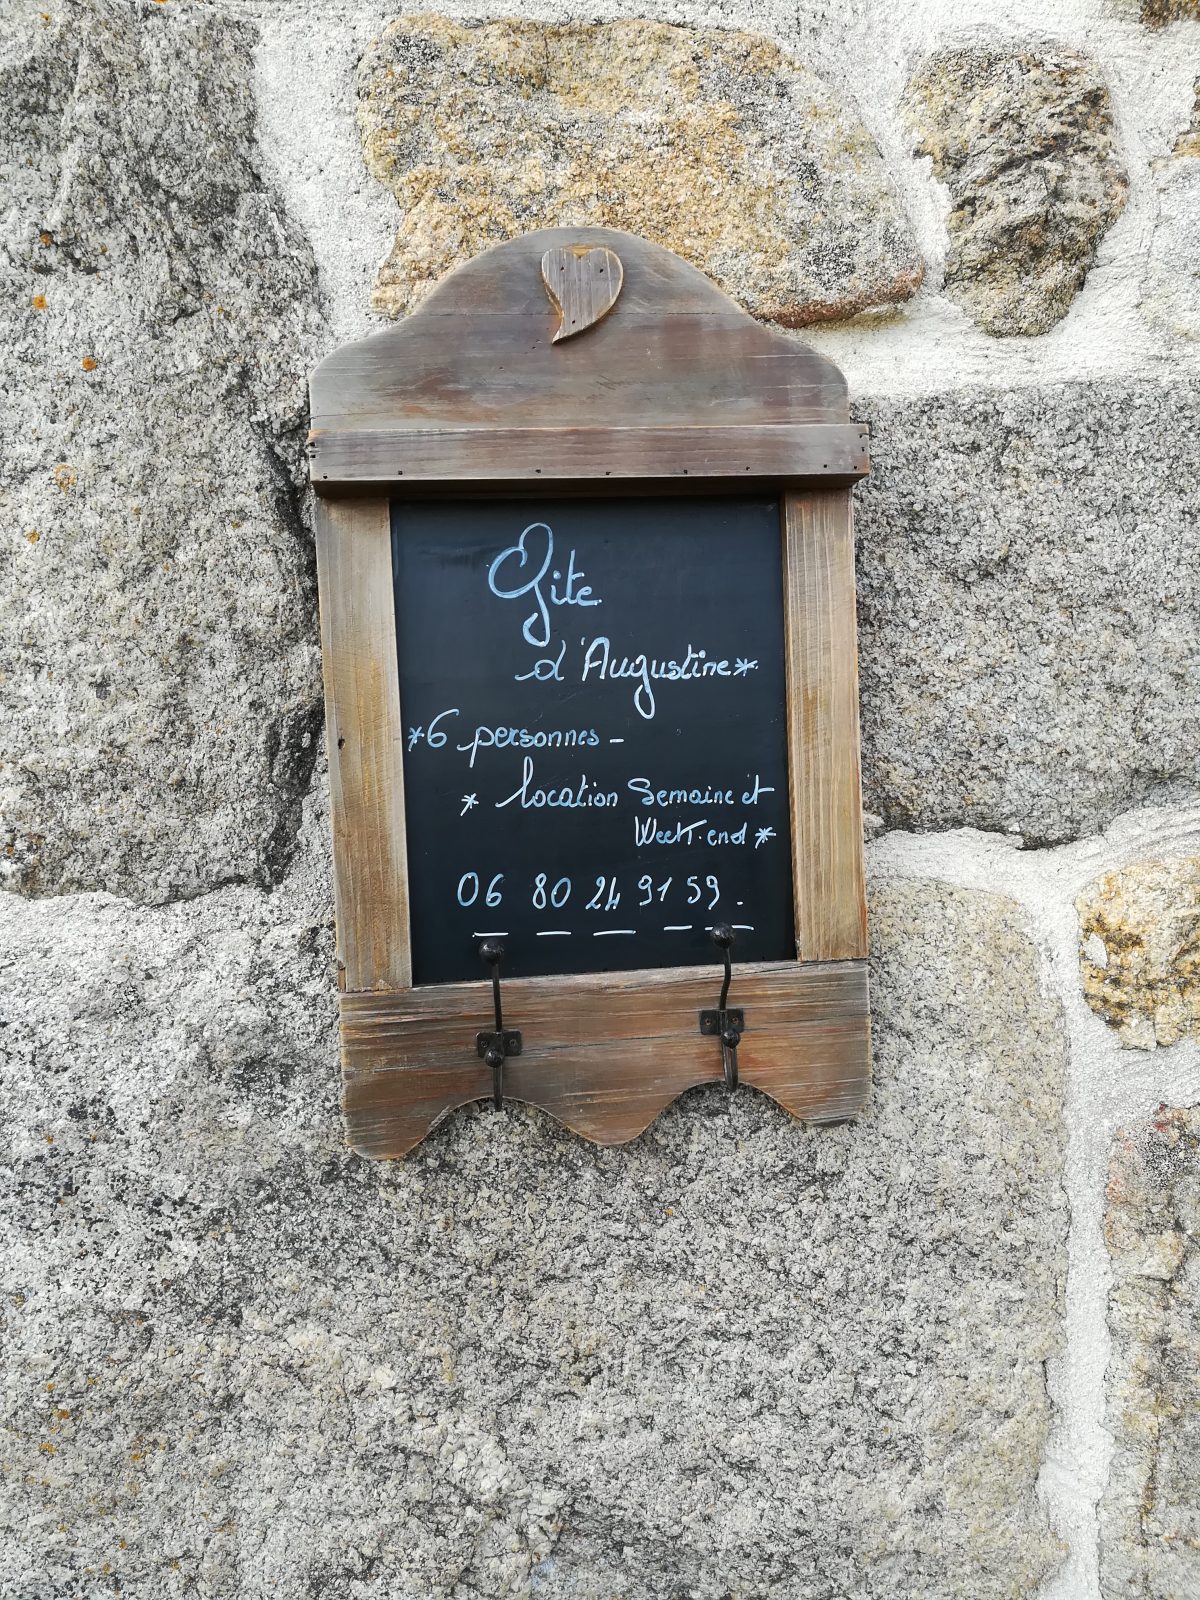 Gite
d'Augustine*
*6 personnes -
* location Semaine et
Week-end *
06 80 24 91 59.